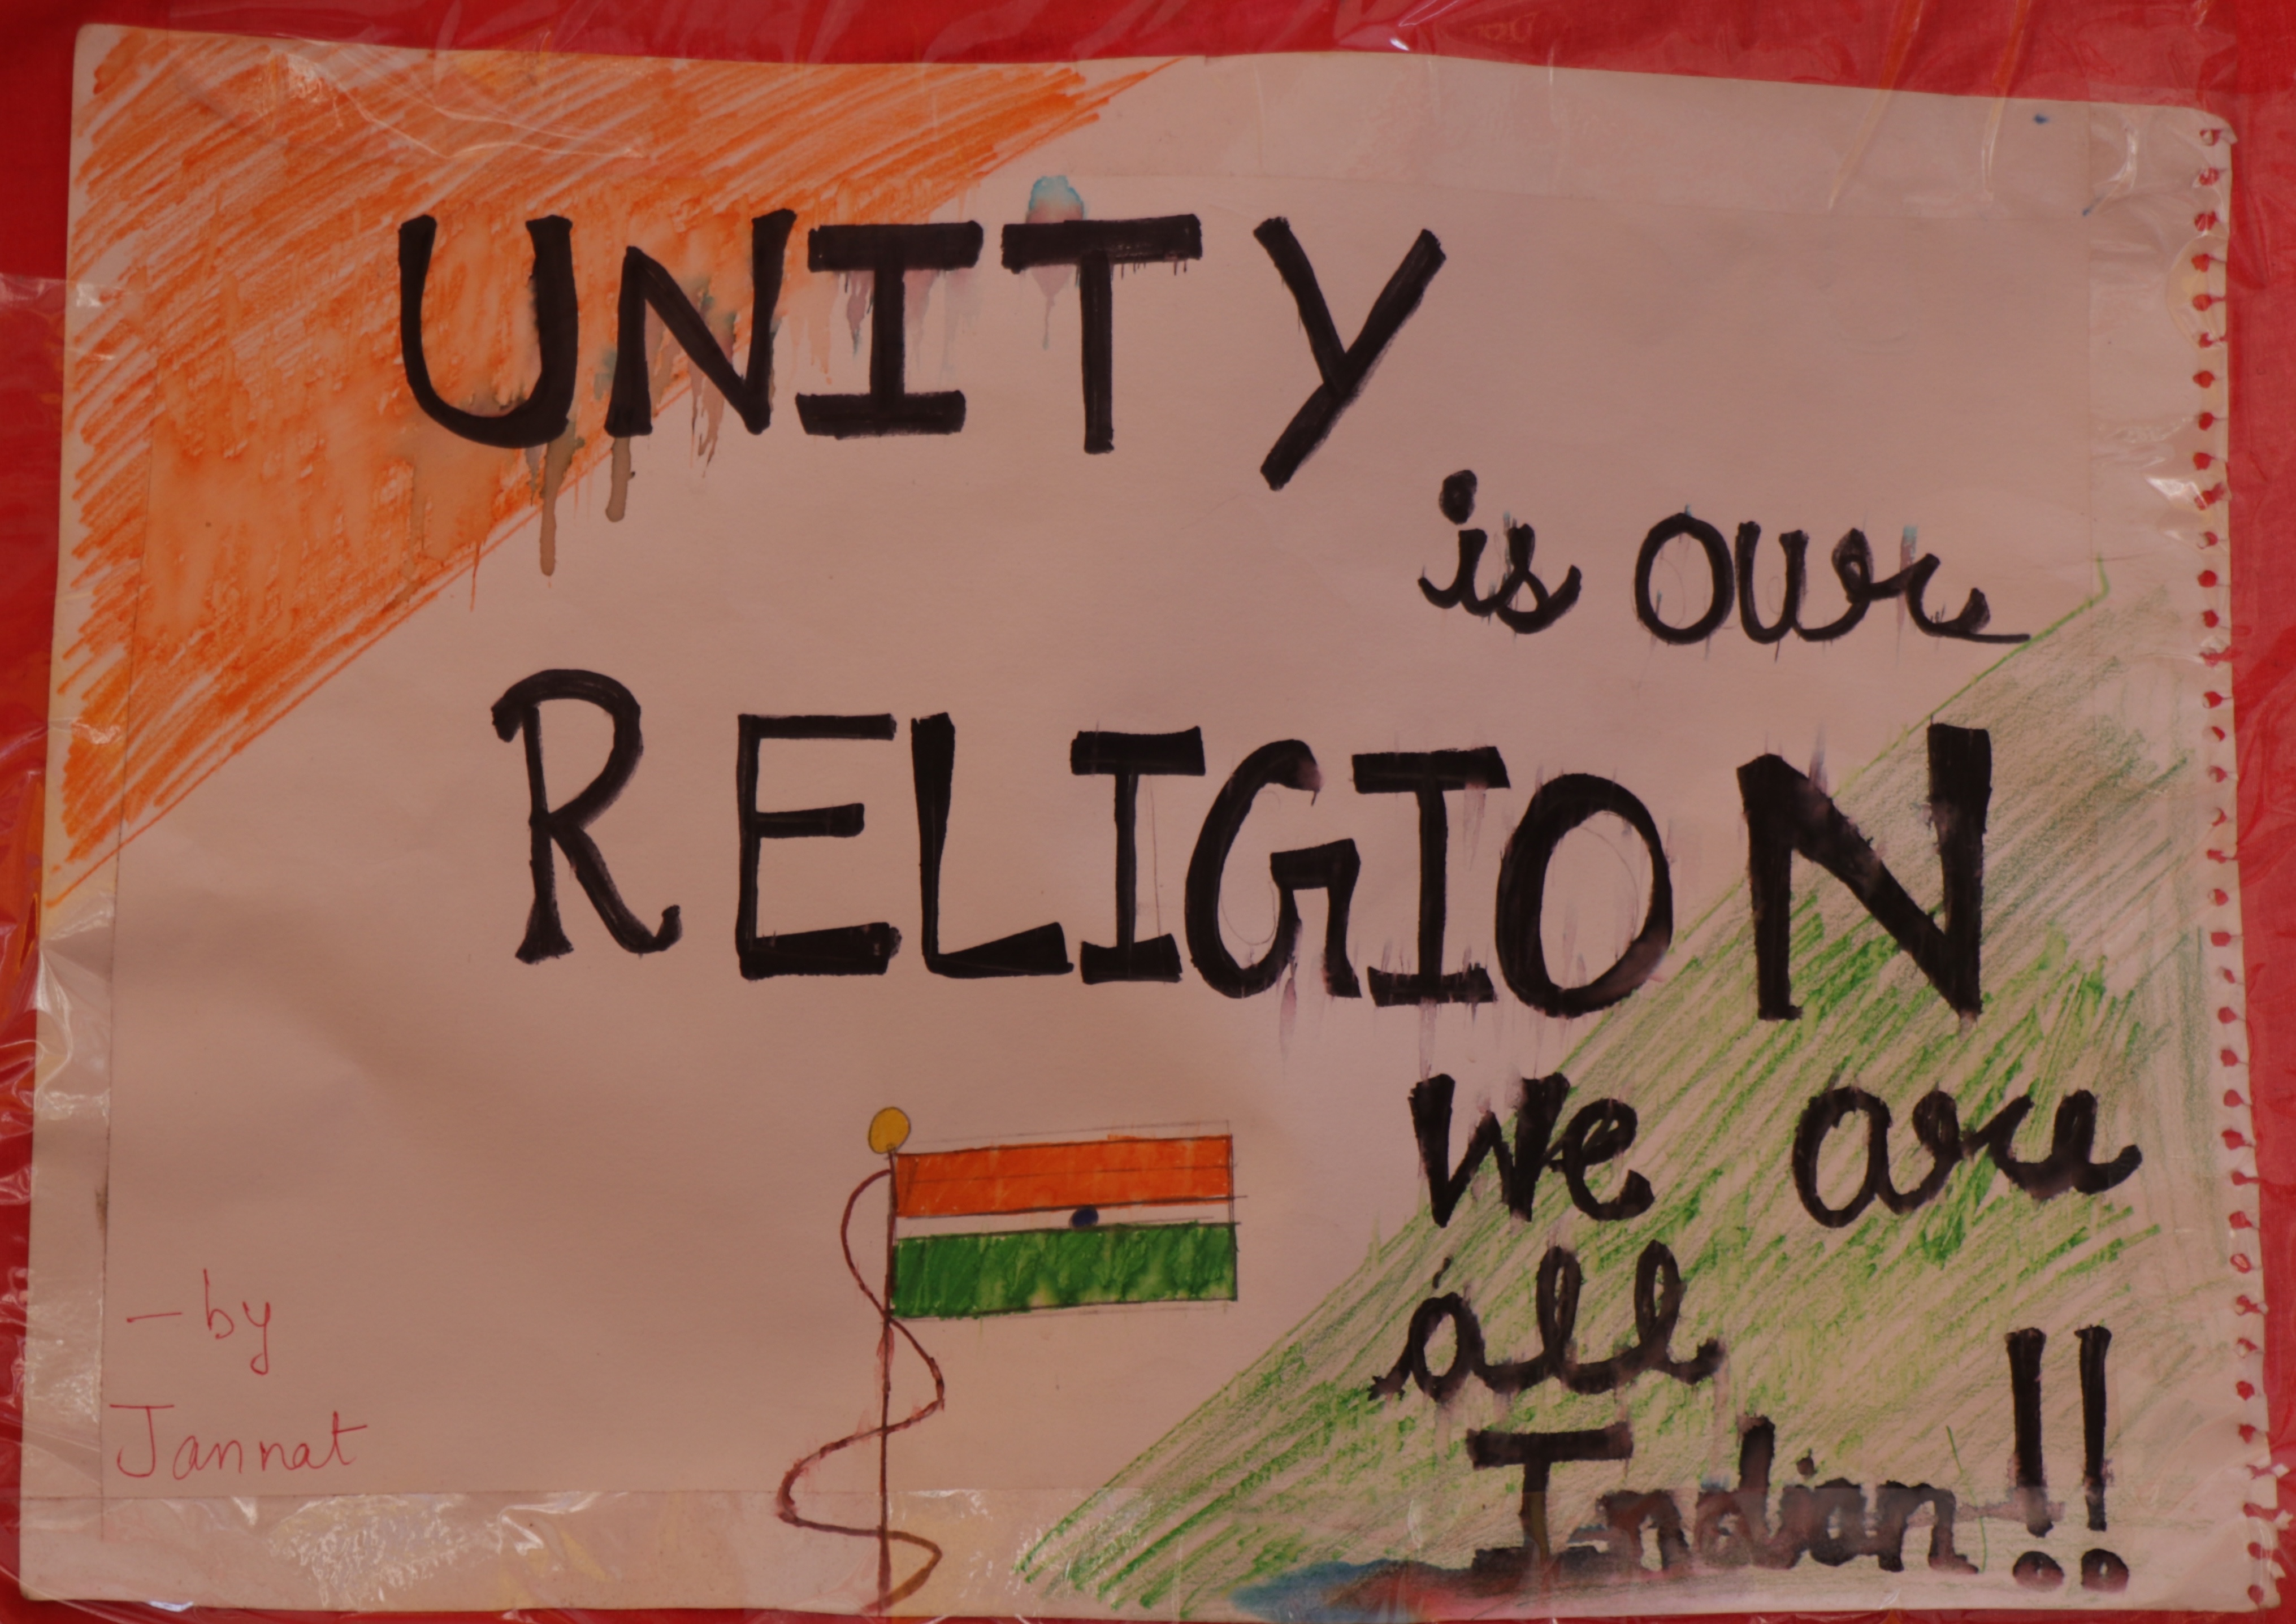 UNITY
is our
RELIGION
We are
all
Indian!!
- by
Jannat